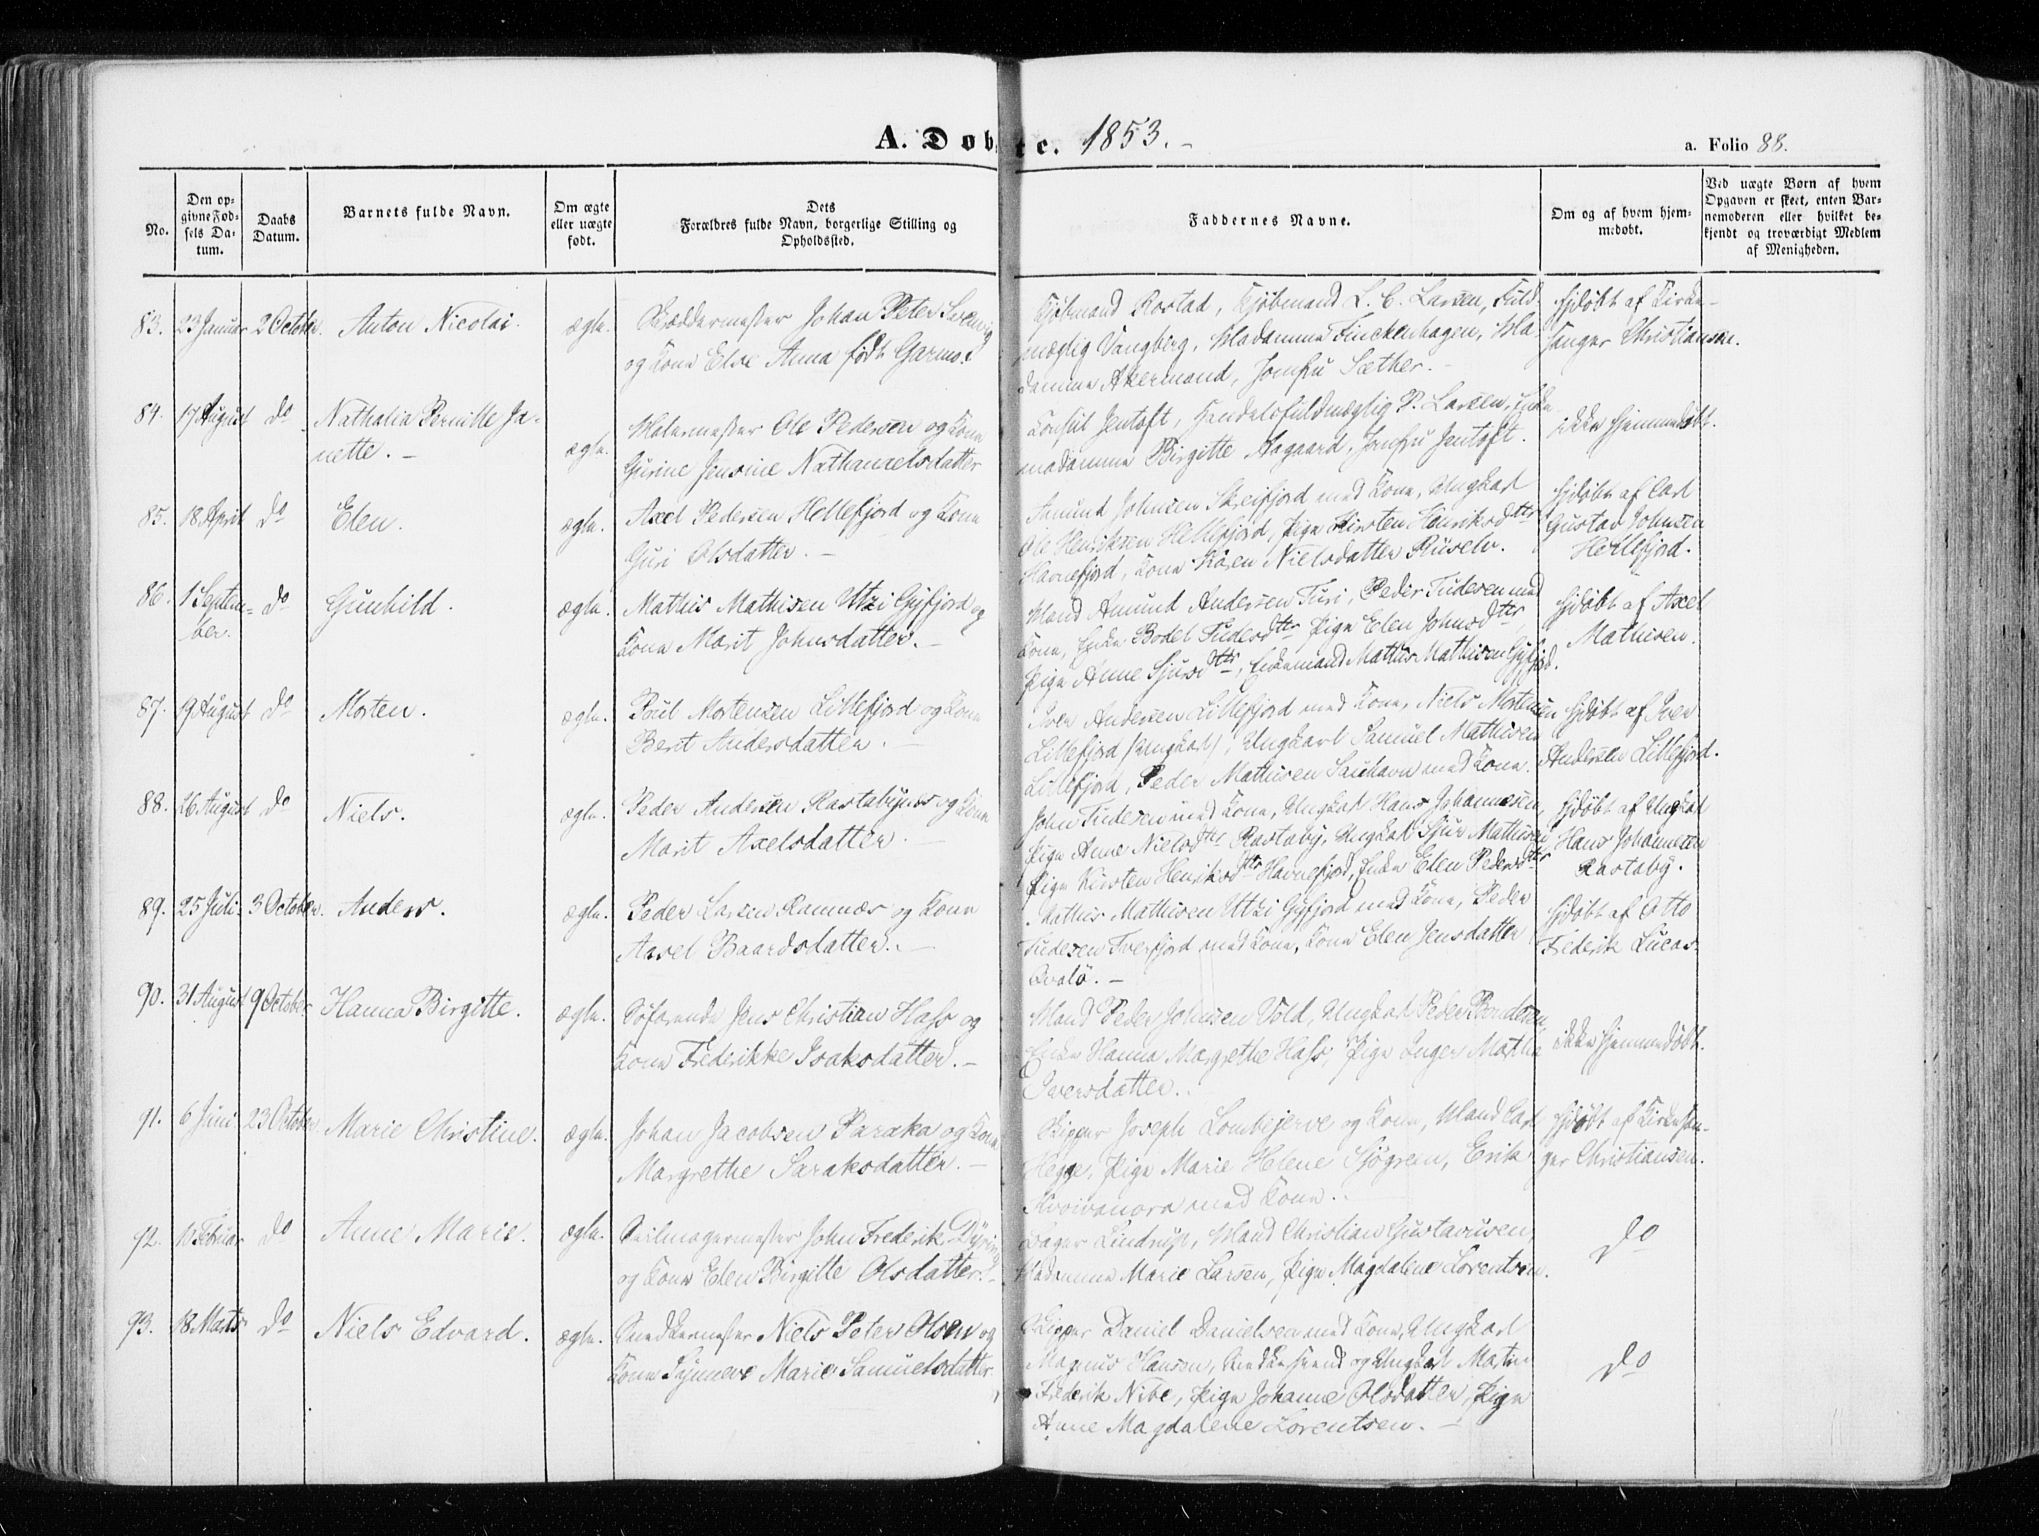 A. Døbte. 1853.
a. Folio 88.
No.
Den opgivne Fødsels Datum.
Daabs Datum.
Barnets fulde Navn.
Om ægte eller uægte født.
Dets Forældres fulde Navn, borgerlige Stilling og Opholdssted.
Faddernes Navne.
Om og af hvem hjemmedøbt.
Ved uægte Børn af hvem Opgaven er skeet, enten Barnemoderen eller hvilket bekjendt og troværdigt Medlem af Menigheden.
83. 23 Januar 2 October. Anton Nicolai. ægte. Skræddermester Johan Peter
og Kone Else Anna født Garmo.
Kjøbmand Rostad, Kjøbmand L. C. Larsen, Fuld-
mægtig Vangberg, Madamme Finckenhagen, Ma-
damme Akermand, Jomfru Sæther.
hjdøbt af Kirke-
sanger Christiansen.
84. 17 August do Nathalia Pernille Ja-
nette. ægte. Malermester Ole Pedersen og Kone
Gurine Jensine Nathanaelsdatter
Konsul Jentoft, Handelsfuldmægtig P. Larsen, Enke-
madamme Birgitte Aagaard, Jomfru Jentoft.
ikke hjemmedøbt.
85. 18 April do Elen. ægte. Axel Pedersen Hellefjord og Kone
Guri Olsdatter.
Amund Johnsen Skreifjord med Kone, Ungkarl
Ole Henriksen Hellefjord, Pige Kirsten Henriksdttr
Havnefjord, Kone Karen Nielsdatter
hjdøbt af Carl
Gustav Johnsen
Hellefjord.
86. 1 Septem-
ber. do Gunhild. ægte. Mathis Mathisen Utzi Gyfjord og
Kone Marit Johnsdatter.
Mand Amund Andersen Turi, Peder Tudesen med
Kone, Enke Bodel Tudesdttr Pige Elen Johnsdttr,
Pige Anne Sjursdttr, Enkemand Mathis Mathisen Gyfjord.
hjdøbt af Axel
Mathisen.
87. 19 August do Morten. ægte. Poul Mortensen Lillefjord og Kone
Berit Andersdatter.
Iver Andersen Lillefjord med Kone, Niels Mortensen
Lillefjord (Ungkarl), Ungkarl Samuel Mathisen
Lillefjord, Peder Mathisen Sauhavn med Kone.
hjdøbt af Iver
Andersen Lillefjord.
88. 26 August do Niels. ægte. Peder Andersen Rastabynes og Kone
Marit Axelsdatter.
John Tudesen med Kone, Ungkarl Hans Johannesen,
Pige Anne Nielsdttr Rastaby, Ungkarl Sjur Mathisen,
Pige Kirsten Henriksdttr Havnefjord, Enke Elen Pedersdttr
hjdøbt af Ungkarl
Hans Johannesen
Rastaby.
89. 25 Juli. 3 October. Anders. ægte. Peder Larsen Ramnæs og Kone
Aasel Baardsdatter.
Mathis Mathisen Utzi Gyfjord med Kone, Peder
Tudesen Tverfjord med Kone, Kone Elen Jensdatter
Qvalø.
hjdøbt af Otto
Frederik Lucas.
90. 31 August 9 October Hanna Birgitte. ægte. Søfarende Jens Christian Hass og
Kone Frederikke Isaksdatter.
Mand Peder Johnsen Vold, Ungkarl Peder
Enke Hanna Margrethe Hass, Pige Inger Martha
Iversdatter.
ikke hjemmedøbt.
91. 6 Juni. 23 October Marie Christine. ægte. Johan Jacobsen Paraka og Kone
Margrethe Saraksdatter.
Skipper Joseph Lombejerve og Kone, Mand Carl
Hegge, Pige Marie Helene Sjøgren, Erik
med Kone.
hjdøbt af Kirkesan-
ger Christiansen.
92. 11 Februar do Anne Marie. ægte. Seilmagermester John Frederik Dyring
og Kone Elen Birgitte Olsdatter.
Bager Lindrup, Mand Christian Gustavusen,
Madamme Marie Larsen, Pige Magdaline Lorentsen.
do
93. 18 Marts do Niels Edvard. ægte. Snedkermester Niels Peter Olsen og
Kone Synneve Marie Samuelsdatter
Skipper Daniel Danielsen med Kone, Ungkarl
Magnus Hansen, Snedkersvend og Ungkarl Martin
Frederik Nibe, Pige Johanne Olsdatter, Pige
Anne Magdalene Lorentsen.
do